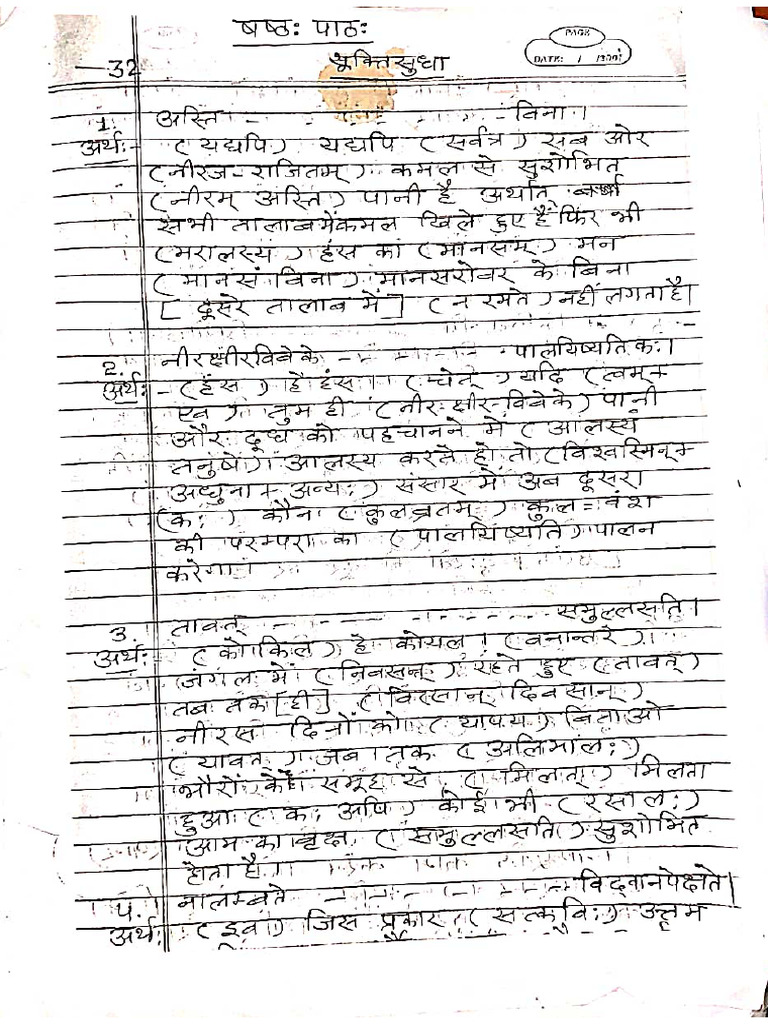 षष्ठः पाठः
PAGE
DATE: / /200
32
सूक्तिसुधा
1. अस्ति - - - - - - विना।
अर्थः- (यद्यपि) यद्यपि (सर्वत्र) सब ओर
(नीरज-राजितम्) कमल से सुशोभित
(नीरम् अस्ति) पानी है अर्थात्
सभी तालाब में कमल खिले हुए हैं फिर भी
(मरालस्य) हंस का (मानसम्) मन
(मानसं विना) मानसरोवर के बिना
[दूसरे तालाब में] (न रमते) नहीं लगता है।
2. नीरक्षीरविवेके - - - - - पालयिष्यति कः।
अर्थः- (हंस) हे हंस। (चेत्) यदि (त्वम्+
एव) तुम ही (नीर-क्षीर-विवेके) पानी
और दूध को पहचानने में (आलस्यं
तनुषे) आलस्य करते हो तो (विश्वस्मिन्+
अधुना+ अन्यः) संसार में अब दूसरा
(कः) कौन (कुलव्रतम्) कुल=वंश
की परम्परा का (पालयिष्यति) पालन
करेगा।
3. तावत् - - - - - - समुल्लसति।
अर्थः (कोकिल) हे कोयल। (वनान्तरे)
जंगल में (निवसन्) रहते हुए (तावत्)
तब तक [ही] (विरसान् दिवसान्)
नीरस दिनों को (यापय) बिताओ
(यावत्) जब तक (अलिमालः)
भौरों के समूह से (मिलत्) मिलता
हुआ (कः अपि) कोई भी (रसालः)
आम का वृक्ष (समुल्लसति) सुशोभित
होता है।
4. नालम्बते - - - - - - विद्वानपेक्षते।
अर्थः (इव) जिस प्रकार (सत्कविः) उत्तम